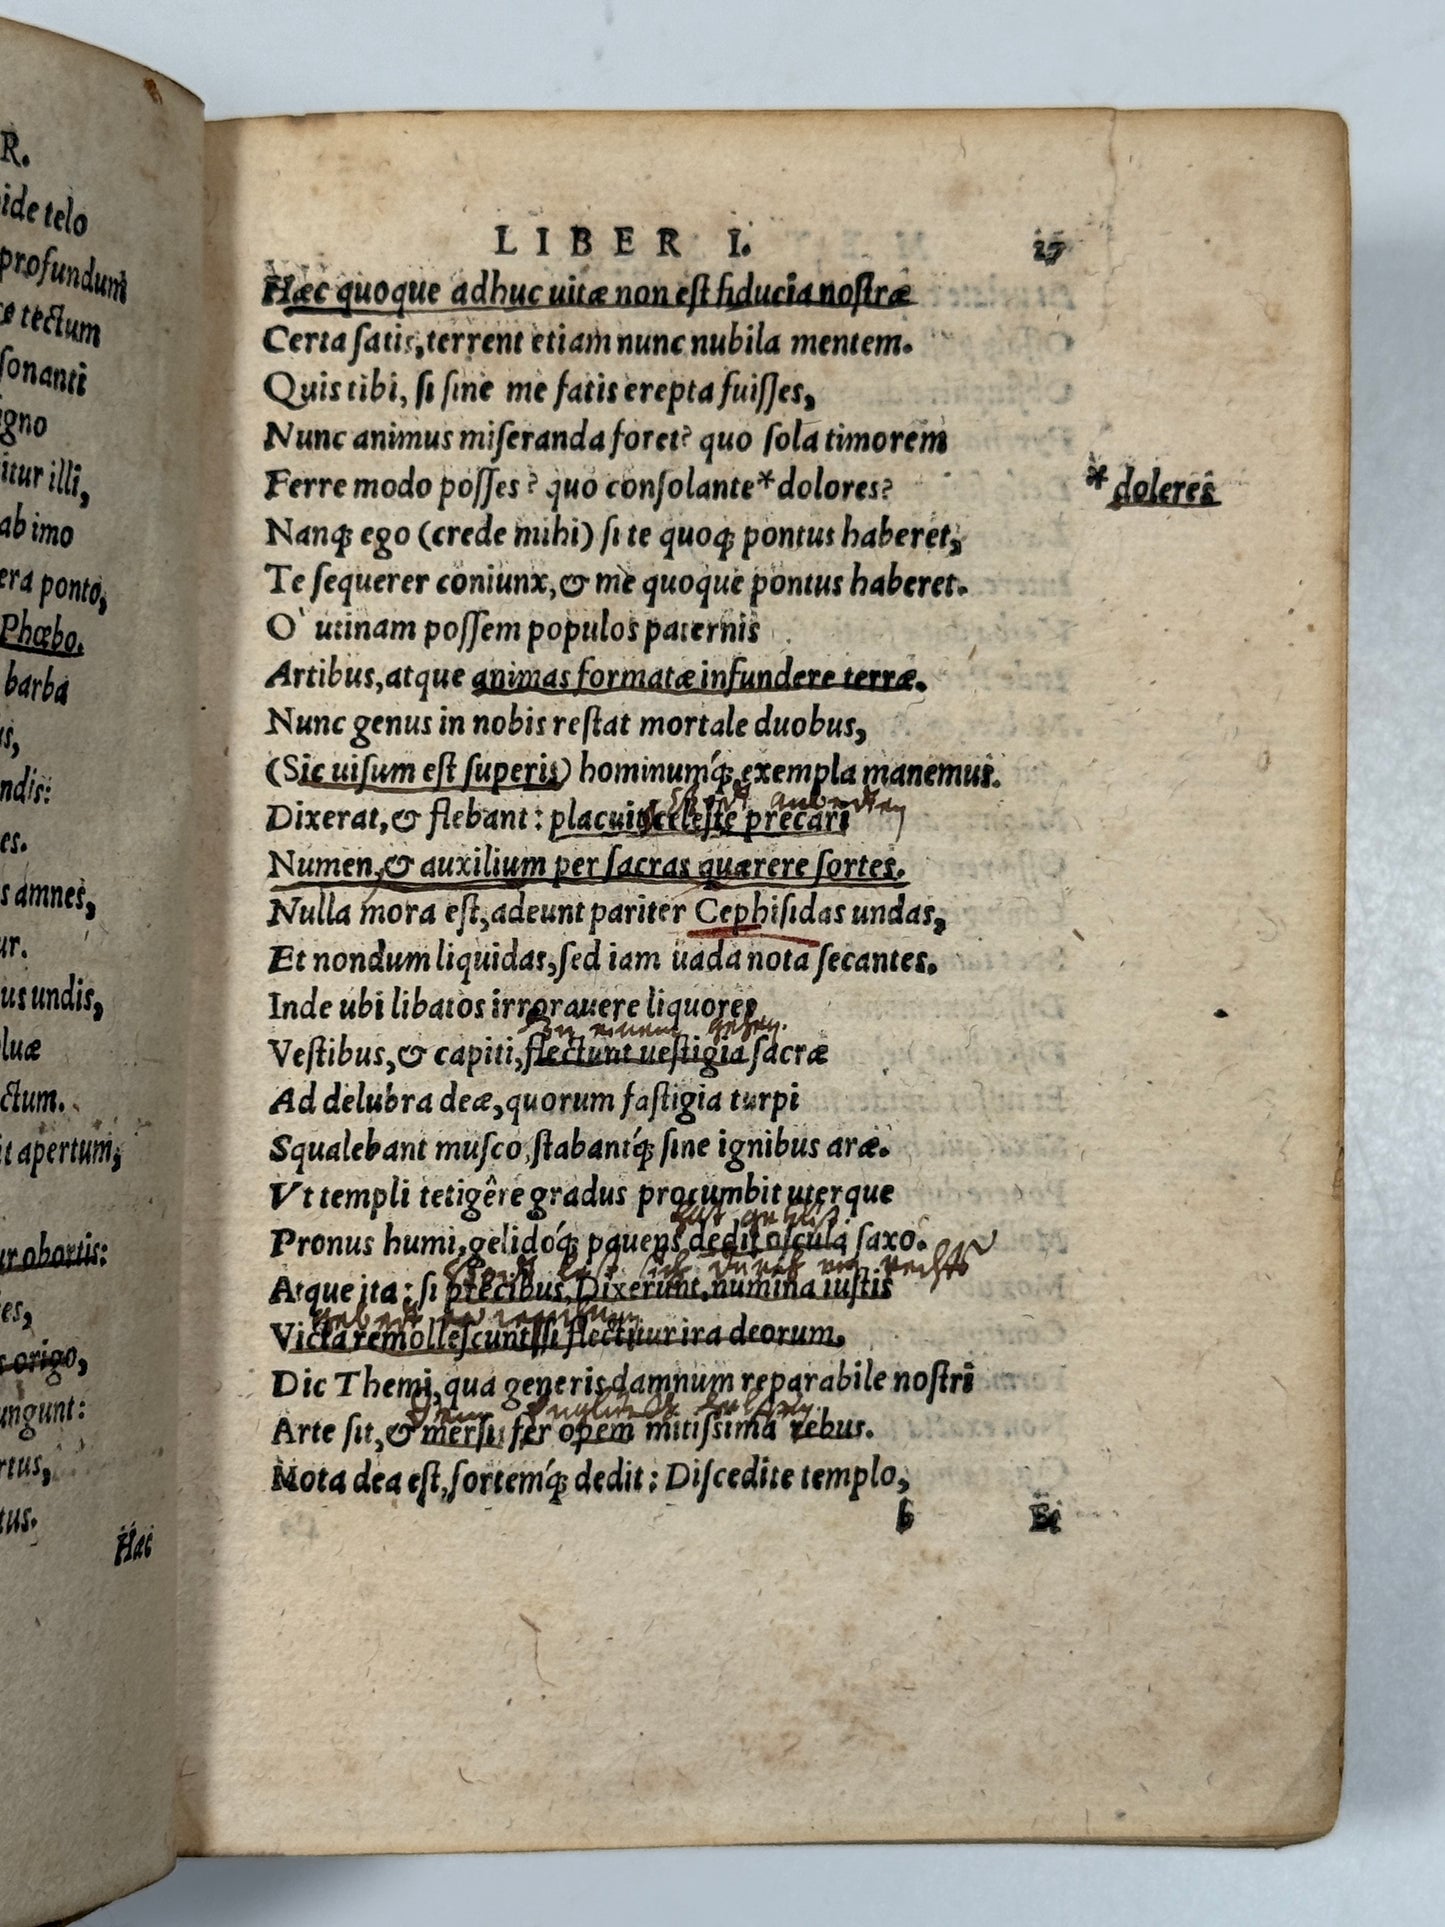 R.
ide telo
profundum
tectum
sonanti
igno
itur illi,
ab imo
era ponto,
Phœbo.
barba
ndis:
es.
s amnes,
ur.
us undis,
luæ
ctum.
it apertum,
ur obortis:
tes,
s origo,
ungunt:
rtus,
tus.
Hæc
LIBER I. 17
Hæc quoque adhuc uitæ non est fiducia nostræ
Certa satis, terrent etiam nunc nubila mentem.
Quis tibi, si sine me fatis erepta fuisses,
Nunc animus miseranda foret? quo sola timorem
Ferre modo posses? quo consolante*dolores?
* doleres
Nanq; ego (crede mihi) si te quoq; pontus haberet,
Te sequerer coniunx, & me quoque pontus haberet.
O` utinam possem populos paternis
Artibus, atque animas formatæ infundere terræ.
Nunc genus in nobis restat mortale duobus,
(Sic uisum est superis) hominumq́; exempla manemus.
anbetten
Dixerat, & flebant: placuit cæleste precari
Numen, & auxilium per sacras quærere sortes.
Nulla mora est, adeunt pariter Cephisidas undas,
Et nondum liquidas, sed iam uada nota secantes.
Inde ubi libatos irrorauere liquores
einem gehen.
Vestibus, & capiti, flectunt uestigia sacræ
Ad delubra deæ, quorum fastigia turpi
Squalebant musco, stabantq́; sine ignibus aræ.
Vt templi tetigêre gradus procumbit uterque
hat geküst
Pronus humi, gelidóq́; pauens dedit oscula saxo.
sich durch ein rechts
Atque ita: si precibus, Dixerunt, numina iustis
gebett
Victa remollescunt, si flectitur ira deorum,
Dic Themi, qua generis damnum reparabile nostri
Arte sit, & mersis fer opem mitissima rebus.
Mota dea est, sortemq́; dedit: Discedite templo,
b Et